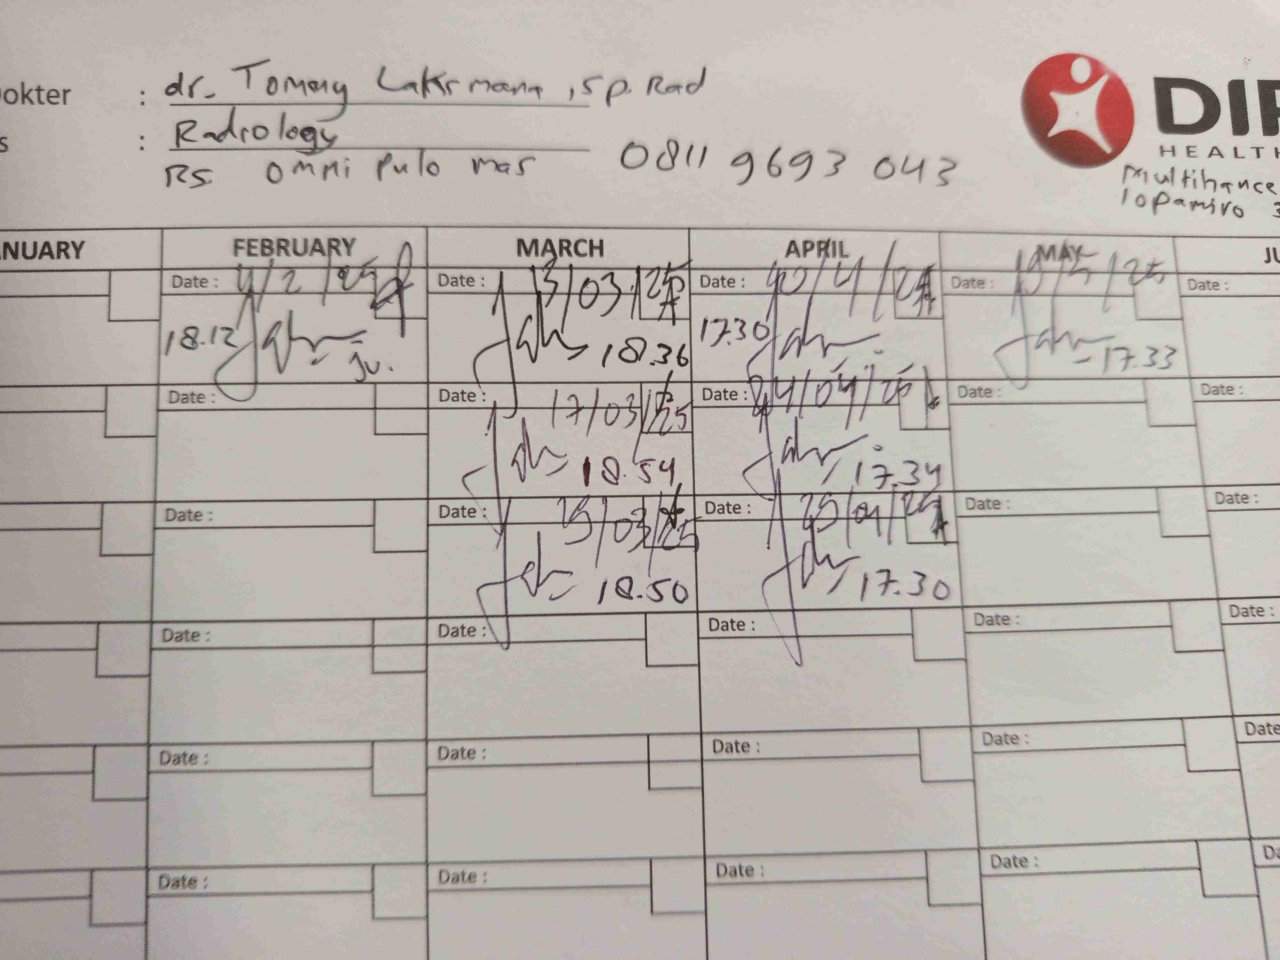 okter : dr. Tommy Laksmana, Sp. Rad
s : Radiology
RS Omni Pulo mas 0811 9693 043
HEALTH
Multihance
Iopamiro 3
NUARY FEBRUARY MARCH APRIL MAY JU
Date : Date : 13/03/25 Date : Date : Date :
18.12 18.36 17.30 17.33
Date : Date : 17/03/25 Date : 24/04/25 Date : Date :
18.54 17.34
Date : Date : 25/03/25 Date : 25/04/25 Date : Date :
18.50 17.30
Date : Date : Date : Date : Date :
Date : Date : Date : Date : Date
Date : Date : Date : Date :